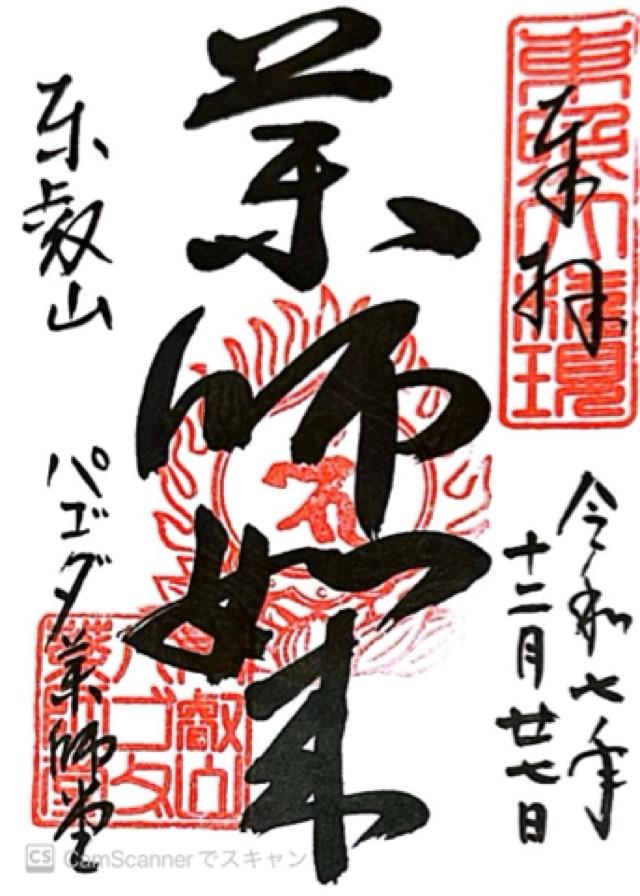 奉拝
東照大権現
令和七年
十二月廿七日
薬師如来
東叡山
パゴダ薬師堂
東叡山
パゴダ
薬師堂
CS CamScannerでスキャン